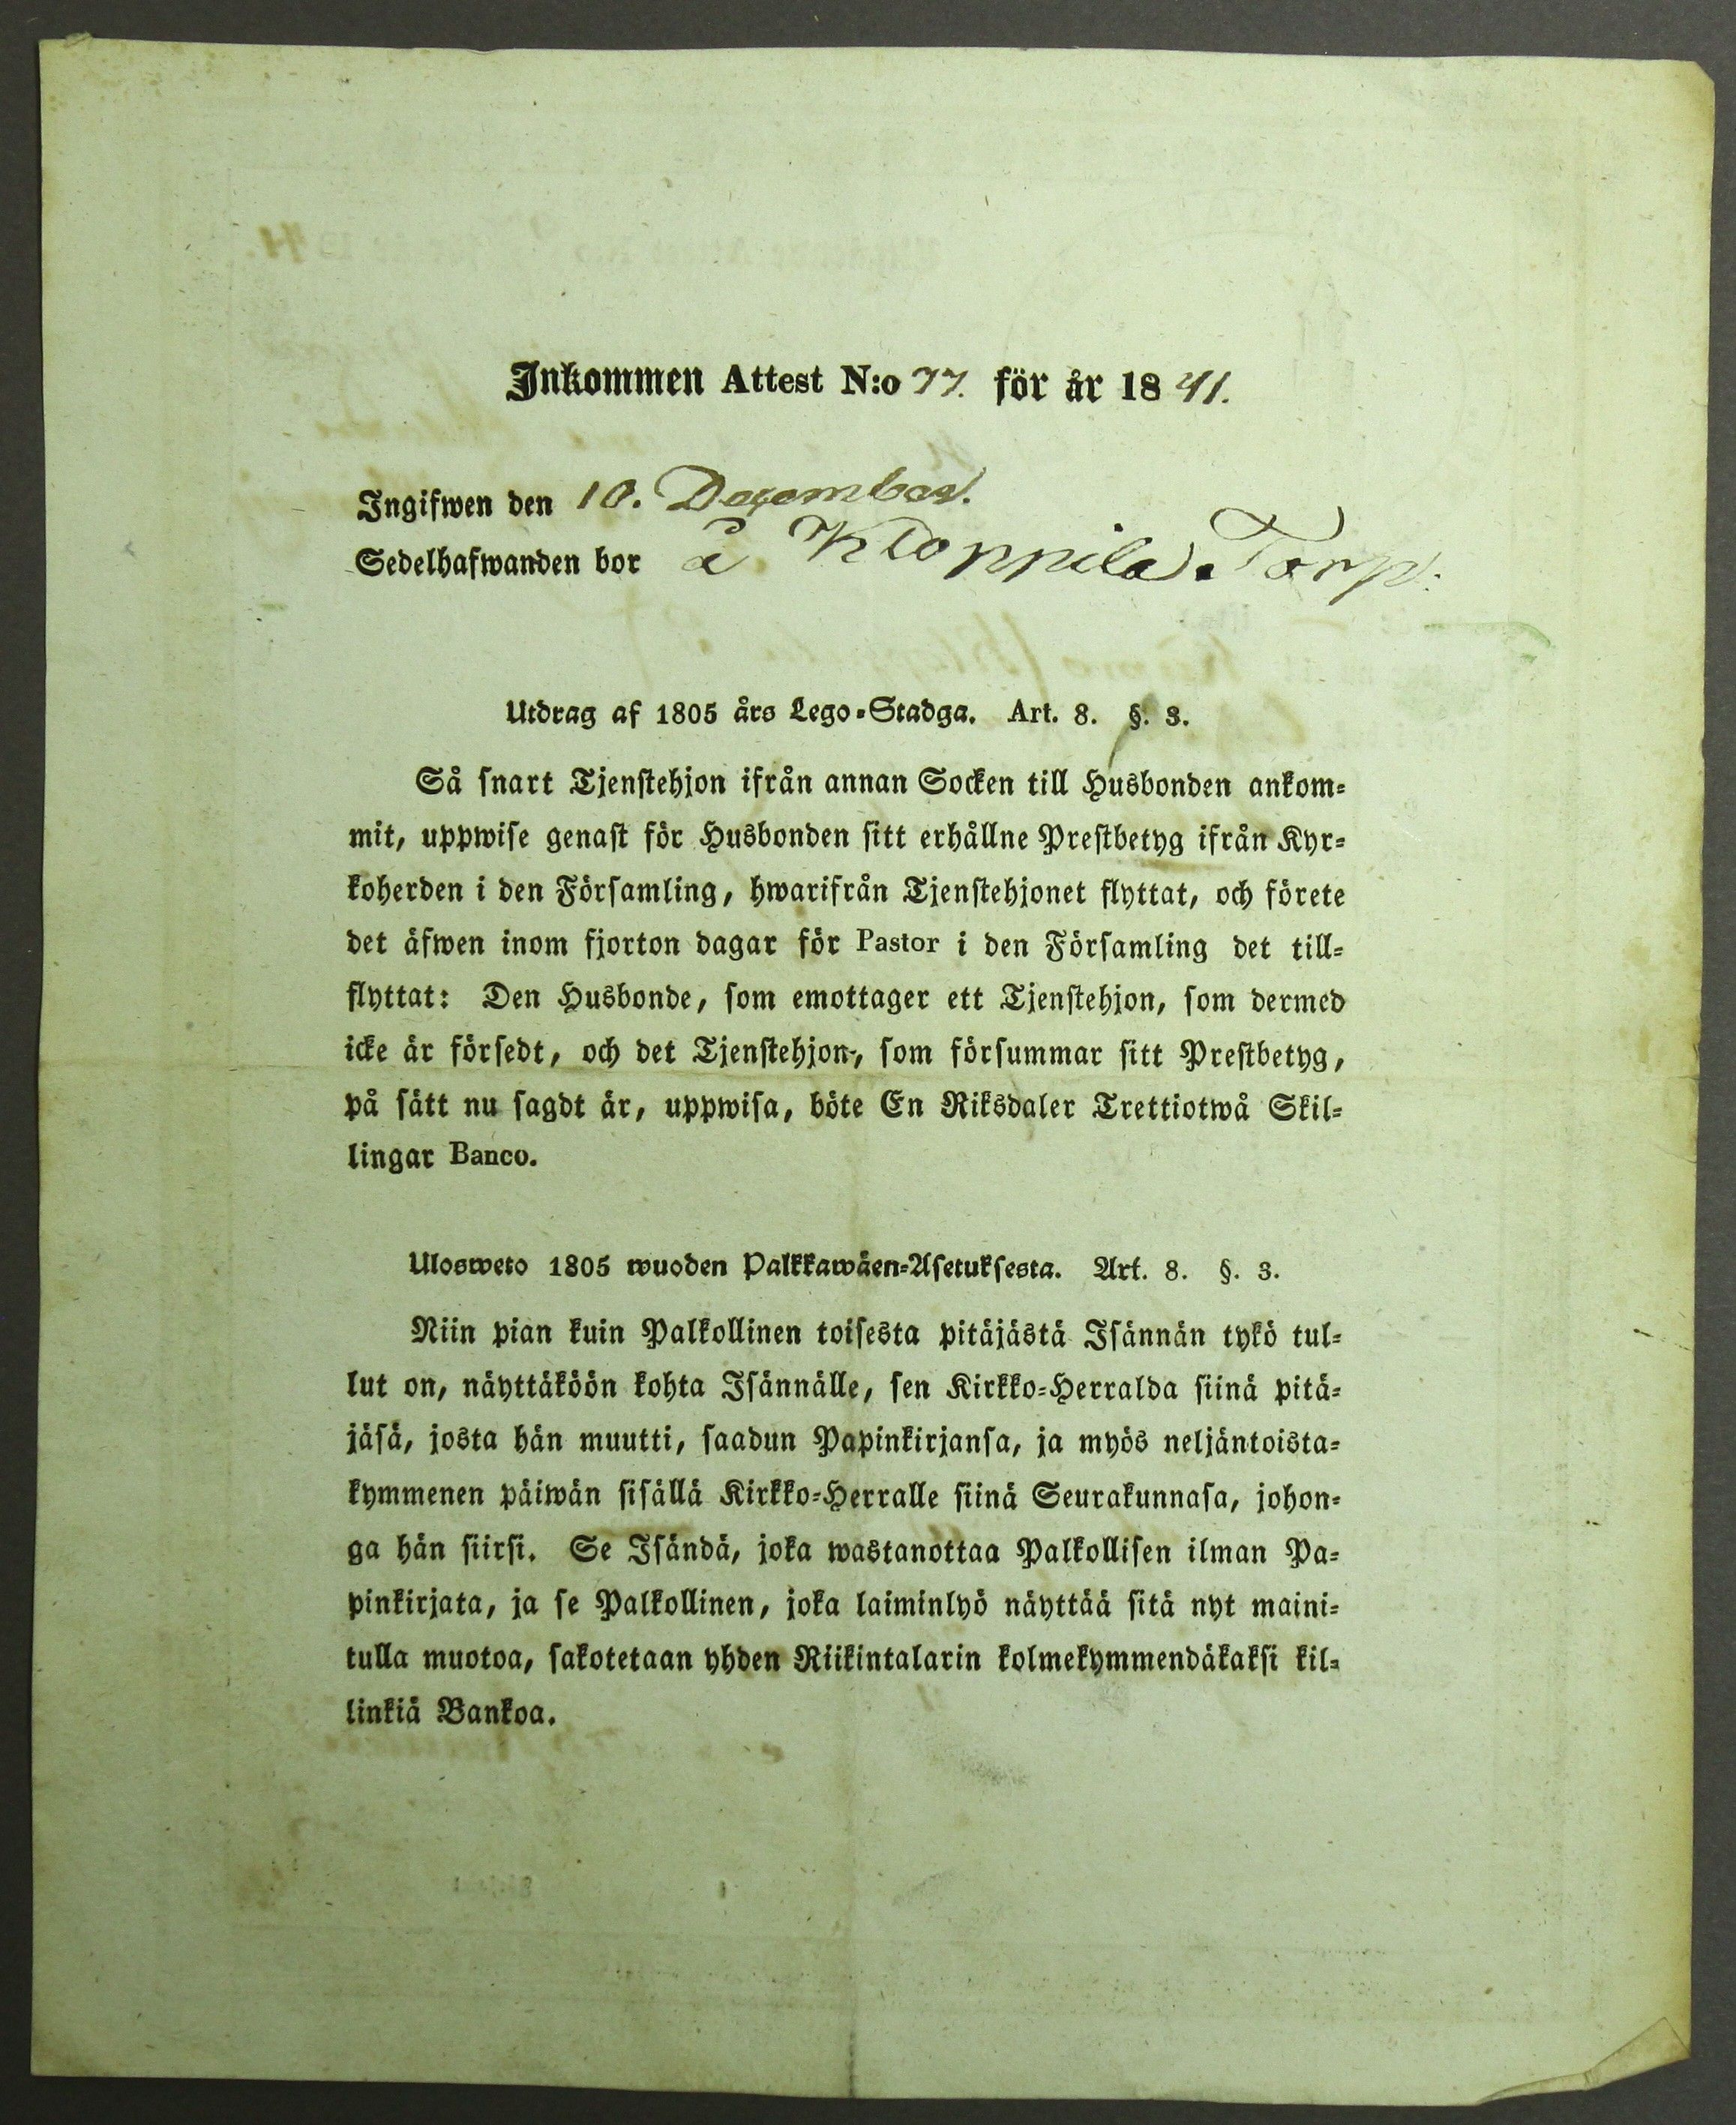 Inkommen Attest N:o 77. för år 1841.
Ingifwen den 10. December.
Sedelhafwanden bor å Kloppila Torp.
Utdrag af 1805 års Lego-Stadga. Art. 8. §. 3.
Så snart Tjenstehjon ifrån annan Socken till Husbonden ankom-
mit, uppwise genast för Husbonden sitt erhållne Prestbetyg ifrån Kyr-
koherden i den Församling, hwarifrån Tjenstehjonet flyttat, och förete
det äfwen inom fjorton dagar för Pastor i den Församling det till-
flyttat: Den Husbonde, som emottager ett Tjenstehjon, som dermed
icke är försedt, och det Tjenstehjon, som försummar sitt Prestbetyg,
på sätt nu sagdt är, uppwisa, böte En Riksdaler Trettiotwå Skil-
lingar Banco.
Ulosweto 1805 wuoden Palkkawäen-Asetuksesta. Art. 8. §. 3.
Niin pian kuin Palkollinen toisesta pitäjästä Isännän tykö tul-
lut on, näyttäköön kohta Isännälle, sen Kirkko-Herralda siinä pitä-
jäsä, josta hän muutti, saadun Papinkirjansa, ja myös neljäntoista-
kymmenen päiwän sisällä Kirkko-Herralle siinä Seurakunnasa, johon-
ga hän siirsi. Se Isändä, joka wastanottaa Palkollisen ilman Pa-
pinkirjata, ja se Palkollinen, joka laiminlyö näyttää sitä nyt maini-
tulla muotoa, sakotetaan yhden Riikintalarin kolmekymmendäkaksi kil-
linkiä Bankoa.